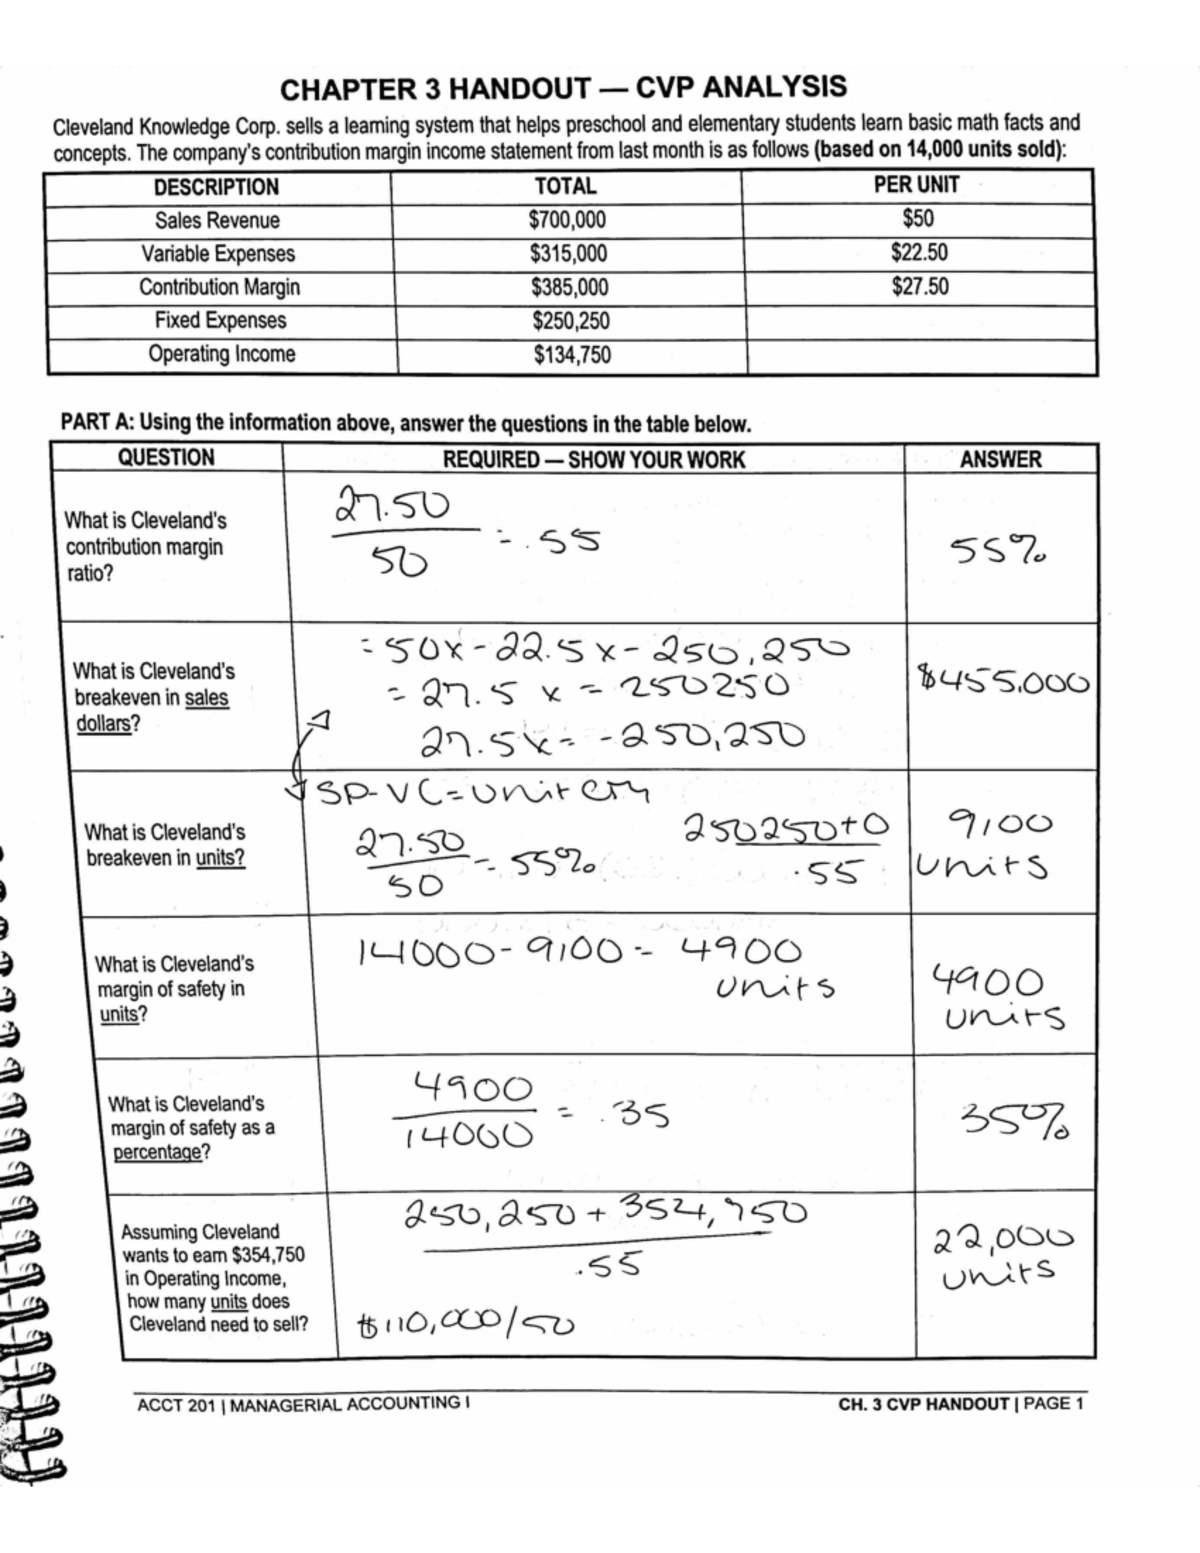 CHAPTER 3 HANDOUT — CVP ANALYSIS
Cleveland Knowledge Corp. sells a learning system that helps preschool and elementary students learn basic math facts and
concepts. The company's contribution margin income statement from last month is as follows (based on 14,000 units sold):
DESCRIPTION TOTAL PER UNIT
Sales Revenue $700,000 $50
Variable Expenses $315,000 $22.50
Contribution Margin $385,000 $27.50
Fixed Expenses $250,250
Operating Income $134,750
PART A: Using the information above, answer the questions in the table below.
QUESTION REQUIRED — SHOW YOUR WORK ANSWER
What is Cleveland's
contribution margin
ratio?
27.50
50
= .55
55%
What is Cleveland's
breakeven in sales
dollars?
= 50x - 22.5x - 250,250
= 27.5 x = 250250
27.5x = -250,250
$455,000
What is Cleveland's
breakeven in units?
SP-VC=unit CM
27.50
50
= 55%
250250+0
.55
9100
units
What is Cleveland's
margin of safety in
units?
14000-9100= 4900
units
4900
units
What is Cleveland's
margin of safety as a
percentage?
4900
14000
= .35
35%
Assuming Cleveland
wants to earn $354,750
in Operating Income,
how many units does
Cleveland need to sell?
250,250 + 354,750
.55
$110,000/50
22,000
units
ACCT 201 | MANAGERIAL ACCOUNTING I
CH. 3 CVP HANDOUT | PAGE 1